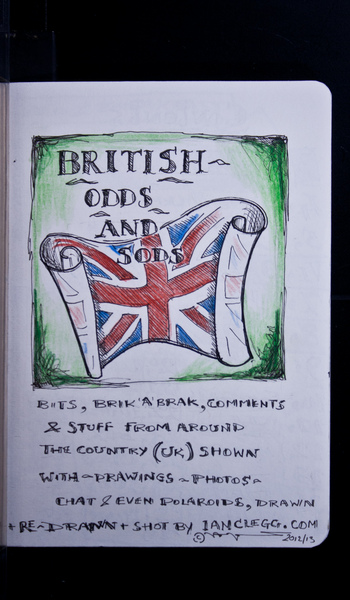 BRITISH
ODDS
AND
SODS
BITS, BRIK'A'BRAK, COMMENTS
& STUFF FROM AROUND
THE COUNTRY (UK) SHOWN
WITH - DRAWINGS - PHOTOS -
CHAT & EVEN POLAROIDS, DRAWN
+ RE-DRAWN + SHOT BY IANCLEGG.COM
© 2012/13